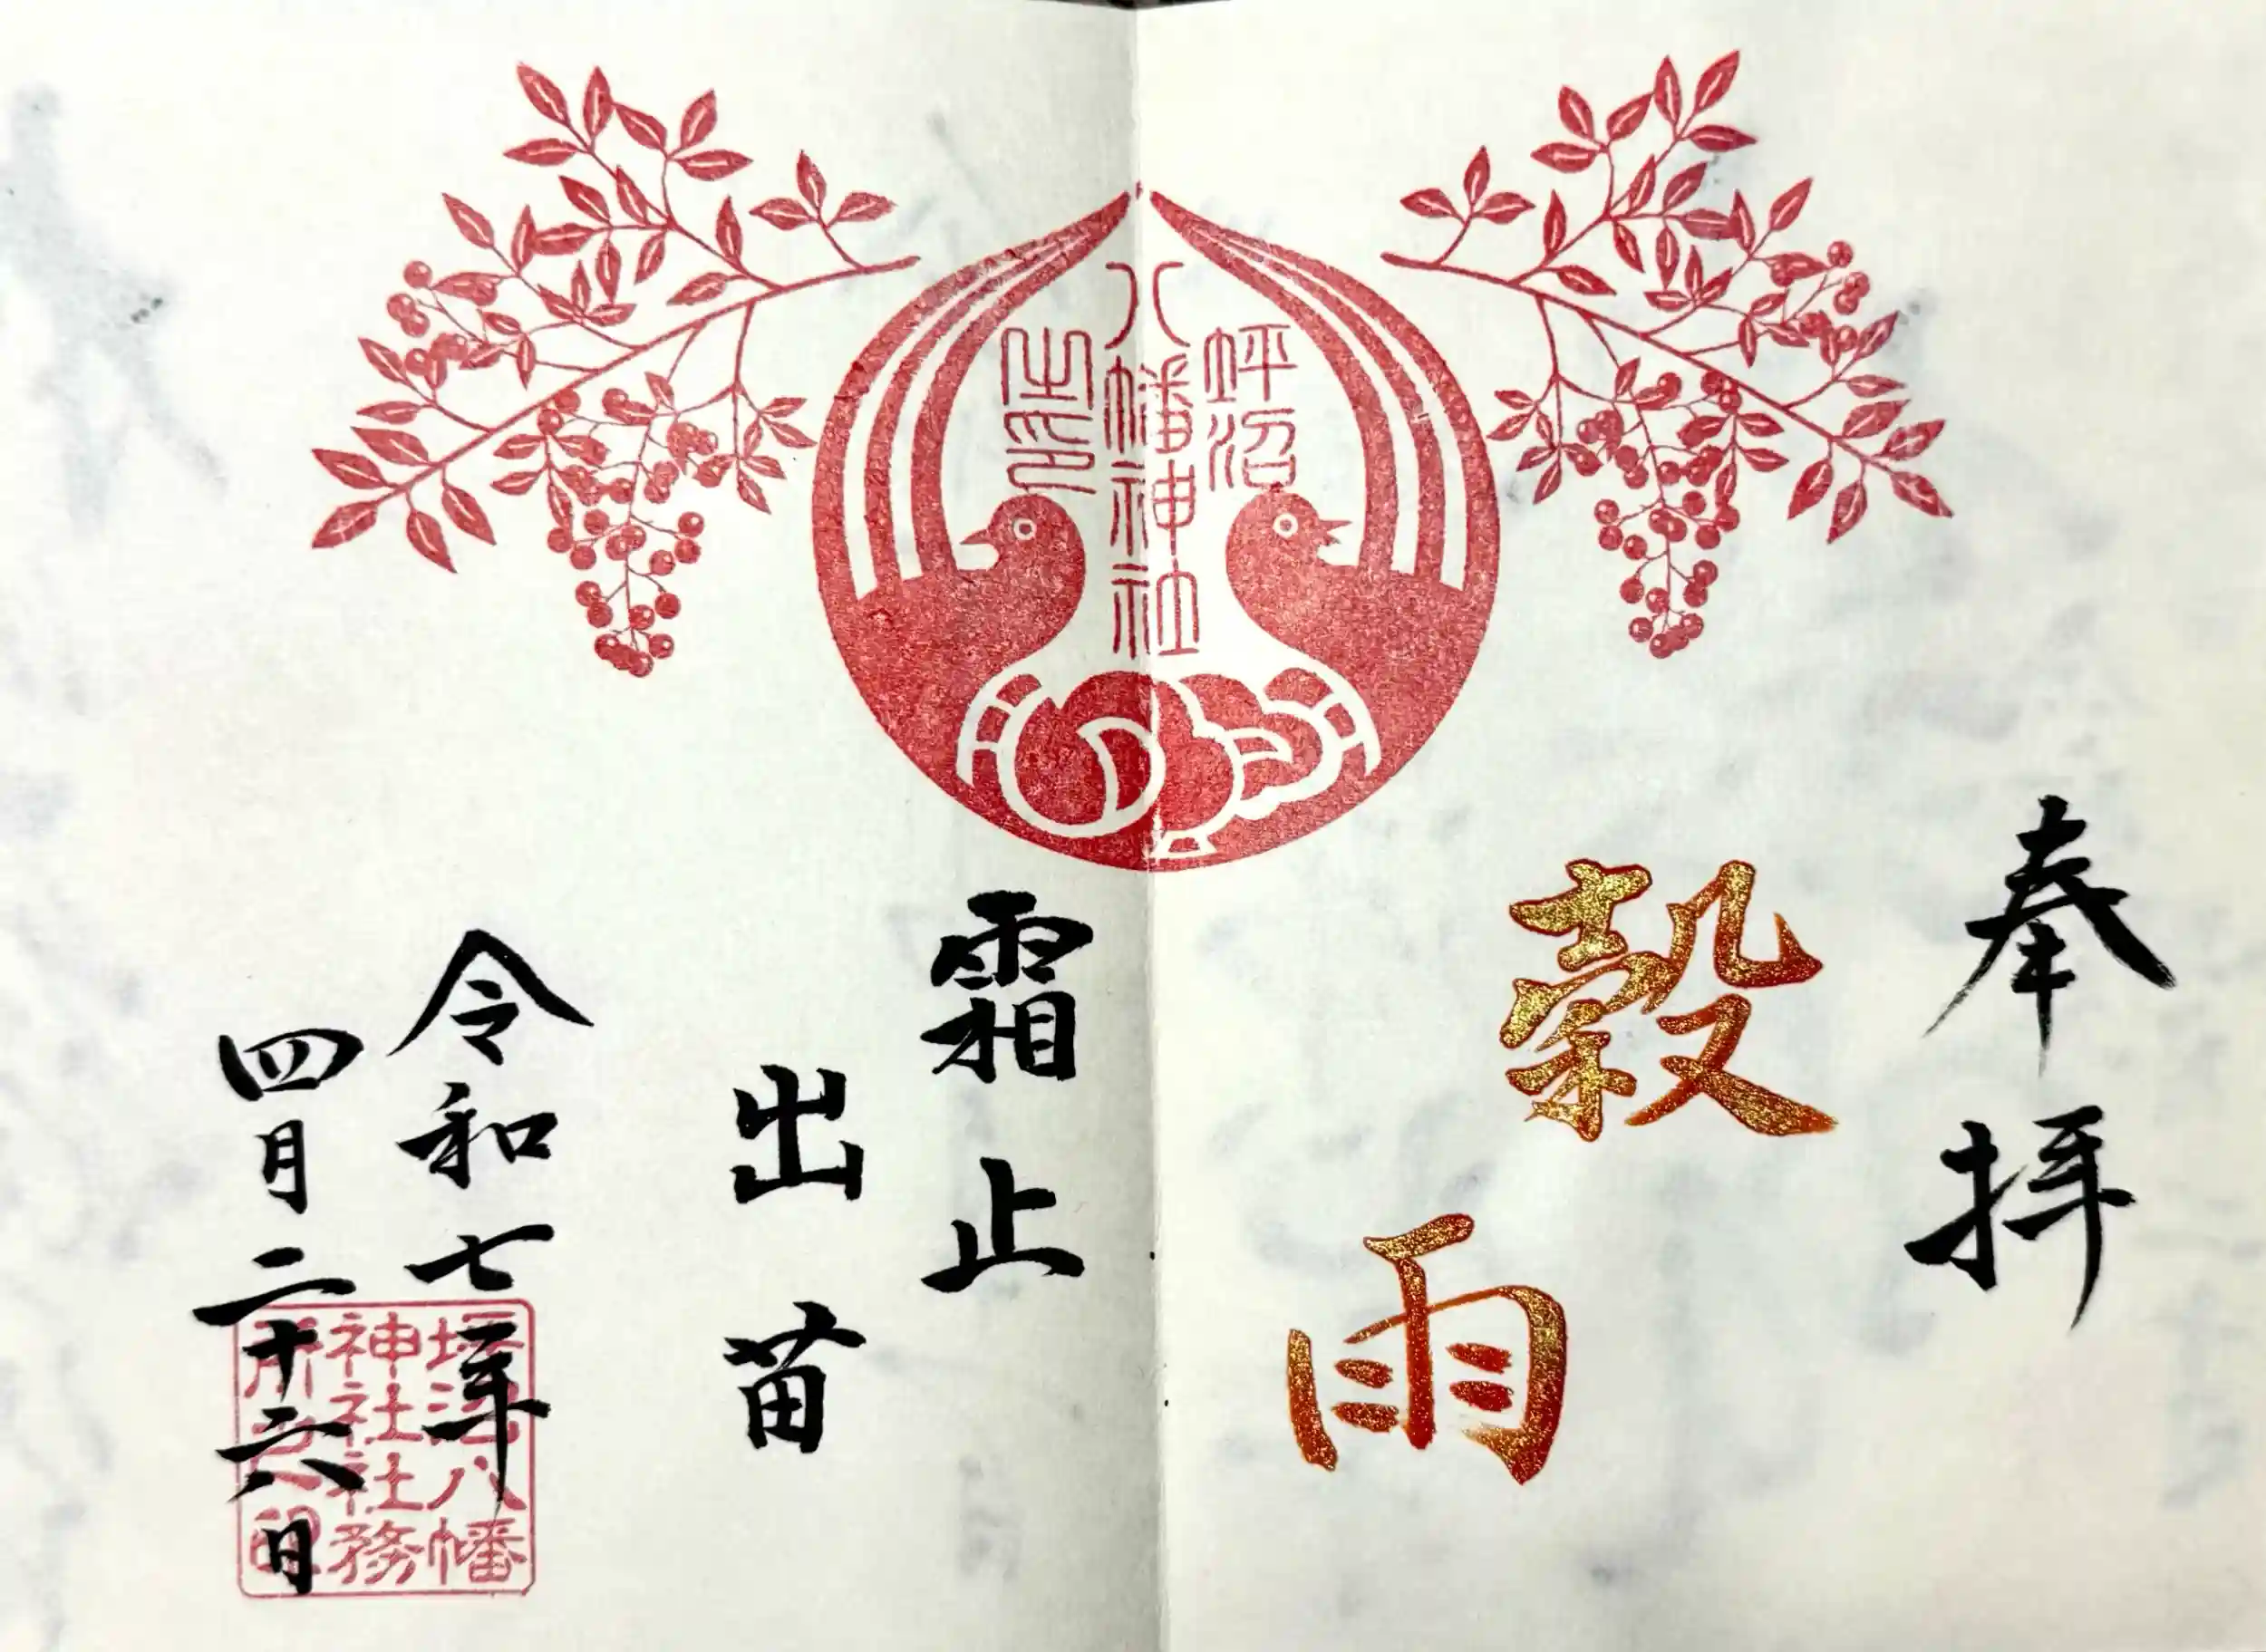 奉拝
穀雨
坪沼
八幡神社
之印
霜止
出苗
令和七年
四月二十六日
坪沼八幡
神社社務
所之印